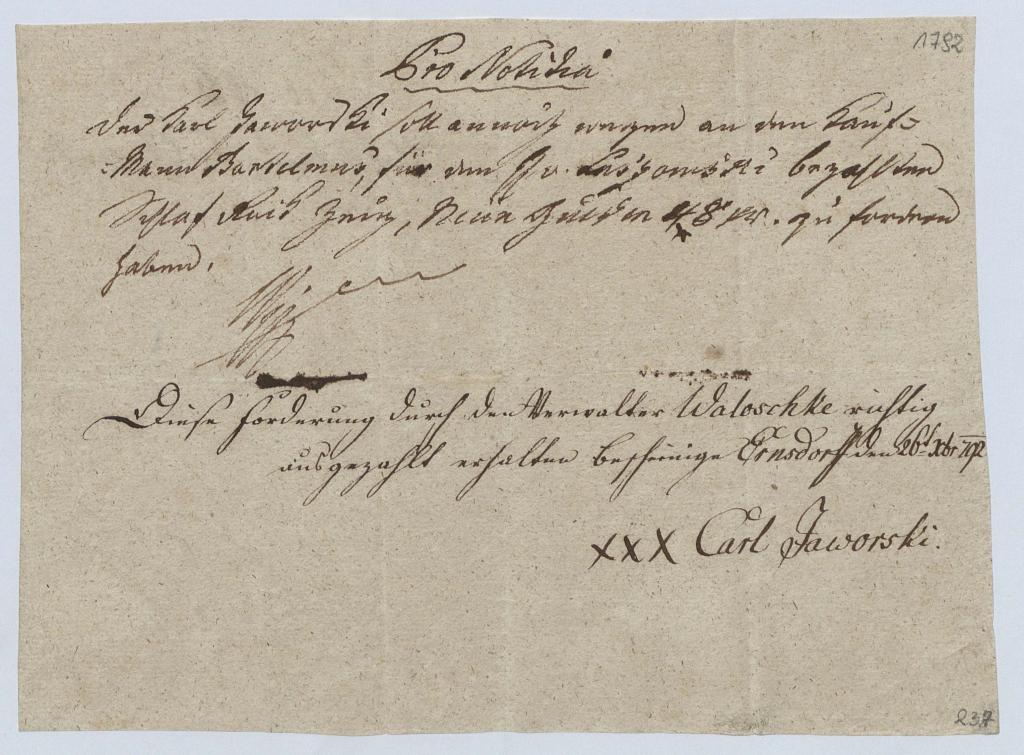 1792
Pro Notitia
Der Karl Jaworski soll annoch wegen an den Kauf=
=Mann Bartelmus, für den Hr. bezahlten
Schlaf Rock Zeug, Neun Gulden 48 xr. zu fordern
haben.
Diese Forderung durch den Verwalter Waloschke richtig
ausgezahlt erhalten bescheinige Ernsdorff den 26t Xbr 792
XXX Carl Jaworski.
237